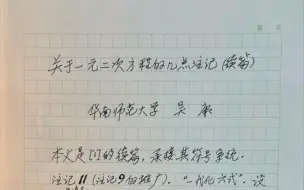 关于一元二次方程的几点注记(续篇)
华南师范大学 吴康
本文是[1]的续篇,承接其符号系统.
注记11(注记9的推广). "一我化六式". 设